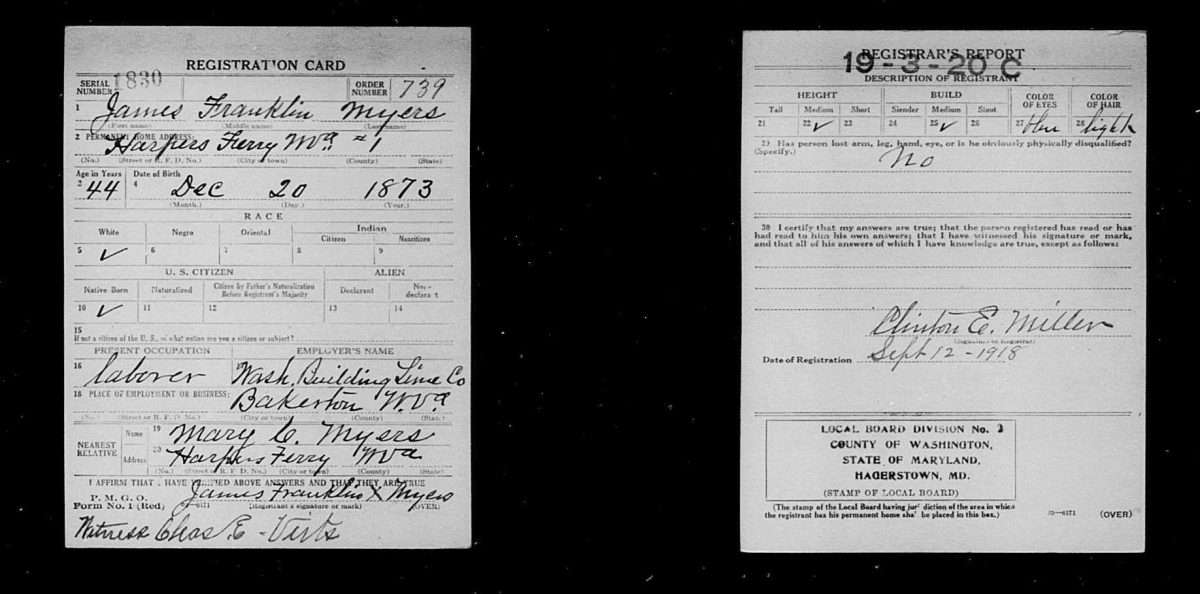 REGISTRATION CARD
SERIAL NUMBER 1830 ORDER NUMBER 739
1 James Franklin Myers
(First name) (Middle name) (Last name)
2 PERMANENT HOME ADDRESS:
Harpers Ferry W Va #1
(No.) (Street or R. F. D. No.) (City or town) (County) (State)
Age in Years Date of Birth
3 44 4 Dec 20 1873
(Month.) (Day.) (Year.)
RACE
White Negro Oriental Indian
Citizen Noncitizen
5 ✓ 6 7 8 9
U. S. CITIZEN ALIEN
Native Born Naturalized Citizen by Father's Naturalization Before Registrant's Majority Declarant Non-declarant
10 ✓ 11 12 13 14
15
If not a citizen of the U. S., of what nation are you a citizen or subject?
PRESENT OCCUPATION EMPLOYER'S NAME
16 laborer 17 Wash. Building Lime Co
18 PLACE OF EMPLOYMENT OR BUSINESS:
Bakerton W. Va
(No.) (Street or R. F. D. No.) (City or town) (County) (State)
NEAREST RELATIVE
Name 19 Mary C. Myers
Address 20 Harpers Ferry W Va
(No.) (Street or R. F. D. No.) (City or town) (County) (State)
I AFFIRM THAT I HAVE VERIFIED ABOVE ANSWERS AND THAT THEY ARE TRUE
P. M. G. O.
Form No. 1 (Red) James Franklin X Myers
(Registrant's signature or mark) (OVER)
Witness Chas. E - Virts
REGISTRAR'S REPORT
19-3-20 C
DESCRIPTION OF REGISTRANT
HEIGHT BUILD COLOR OF EYES COLOR OF HAIR
Tall Medium Short Slender Medium Stout
21 22 ✓ 23 24 25 ✓ 26 27 blue 28 light
29 Has person lost arm, leg, hand, eye, or is he obviously physically disqualified?
(Specify.) No
30 I certify that my answers are true; that the person registered has read or has
had read to him his own answers; that I have witnessed his signature or mark,
and that all of his answers of which I have knowledge are true, except as follows:
Clinton E. Miller
(Signature of Registrar)
Date of Registration Sept 12 - 1918
LOCAL BOARD DIVISION No. 2
COUNTY OF WASHINGTON,
STATE OF MARYLAND,
HAGERSTOWN, MD.
(STAMP OF LOCAL BOARD)
(The stamp of the Local Board having jurisdiction of the area in which
the registrant has his permanent home shall be placed in this box.)
(OVER)